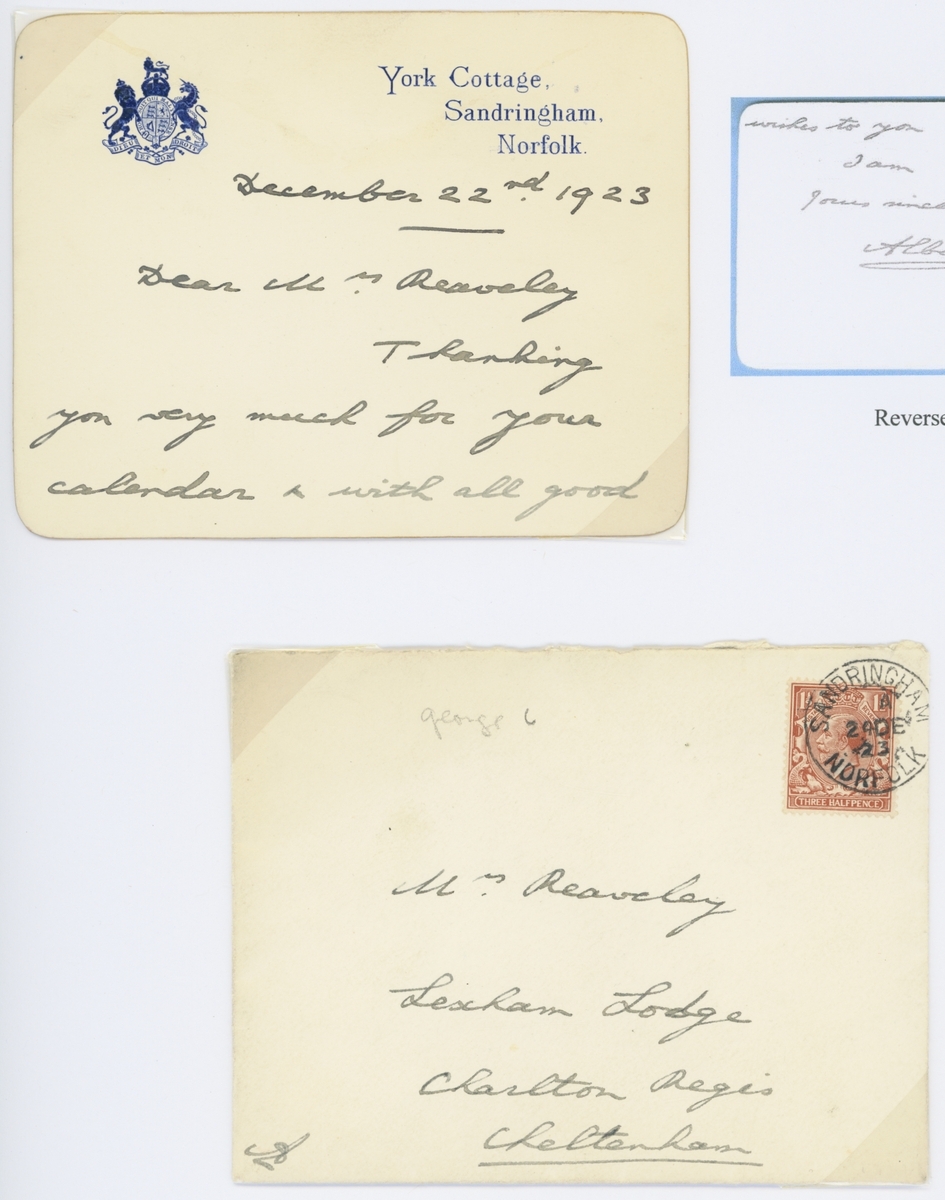 York Cottage,
Sandringham,
Norfolk.
DIEU ET MON DROIT
December 22nd 1923
Dear Mrs Reaveley
Thanking
you very much for your
calendar & with all good
wishes to you
I am
Yours since
Albe
Reverse
george 6
SANDRINGHAM
A
24 DE
23
NORFOLK
THREE HALFPENCE
Mrs Reaveley
Lexham Lodge
Charlton Regis
Cheltenham
A